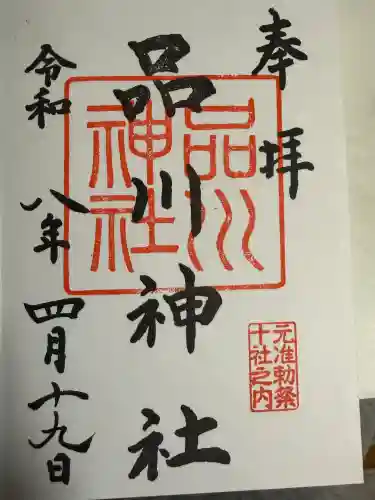 奉拝
品川神社
品川神社
元准勅祭
十社之内
令和八年四月十九日